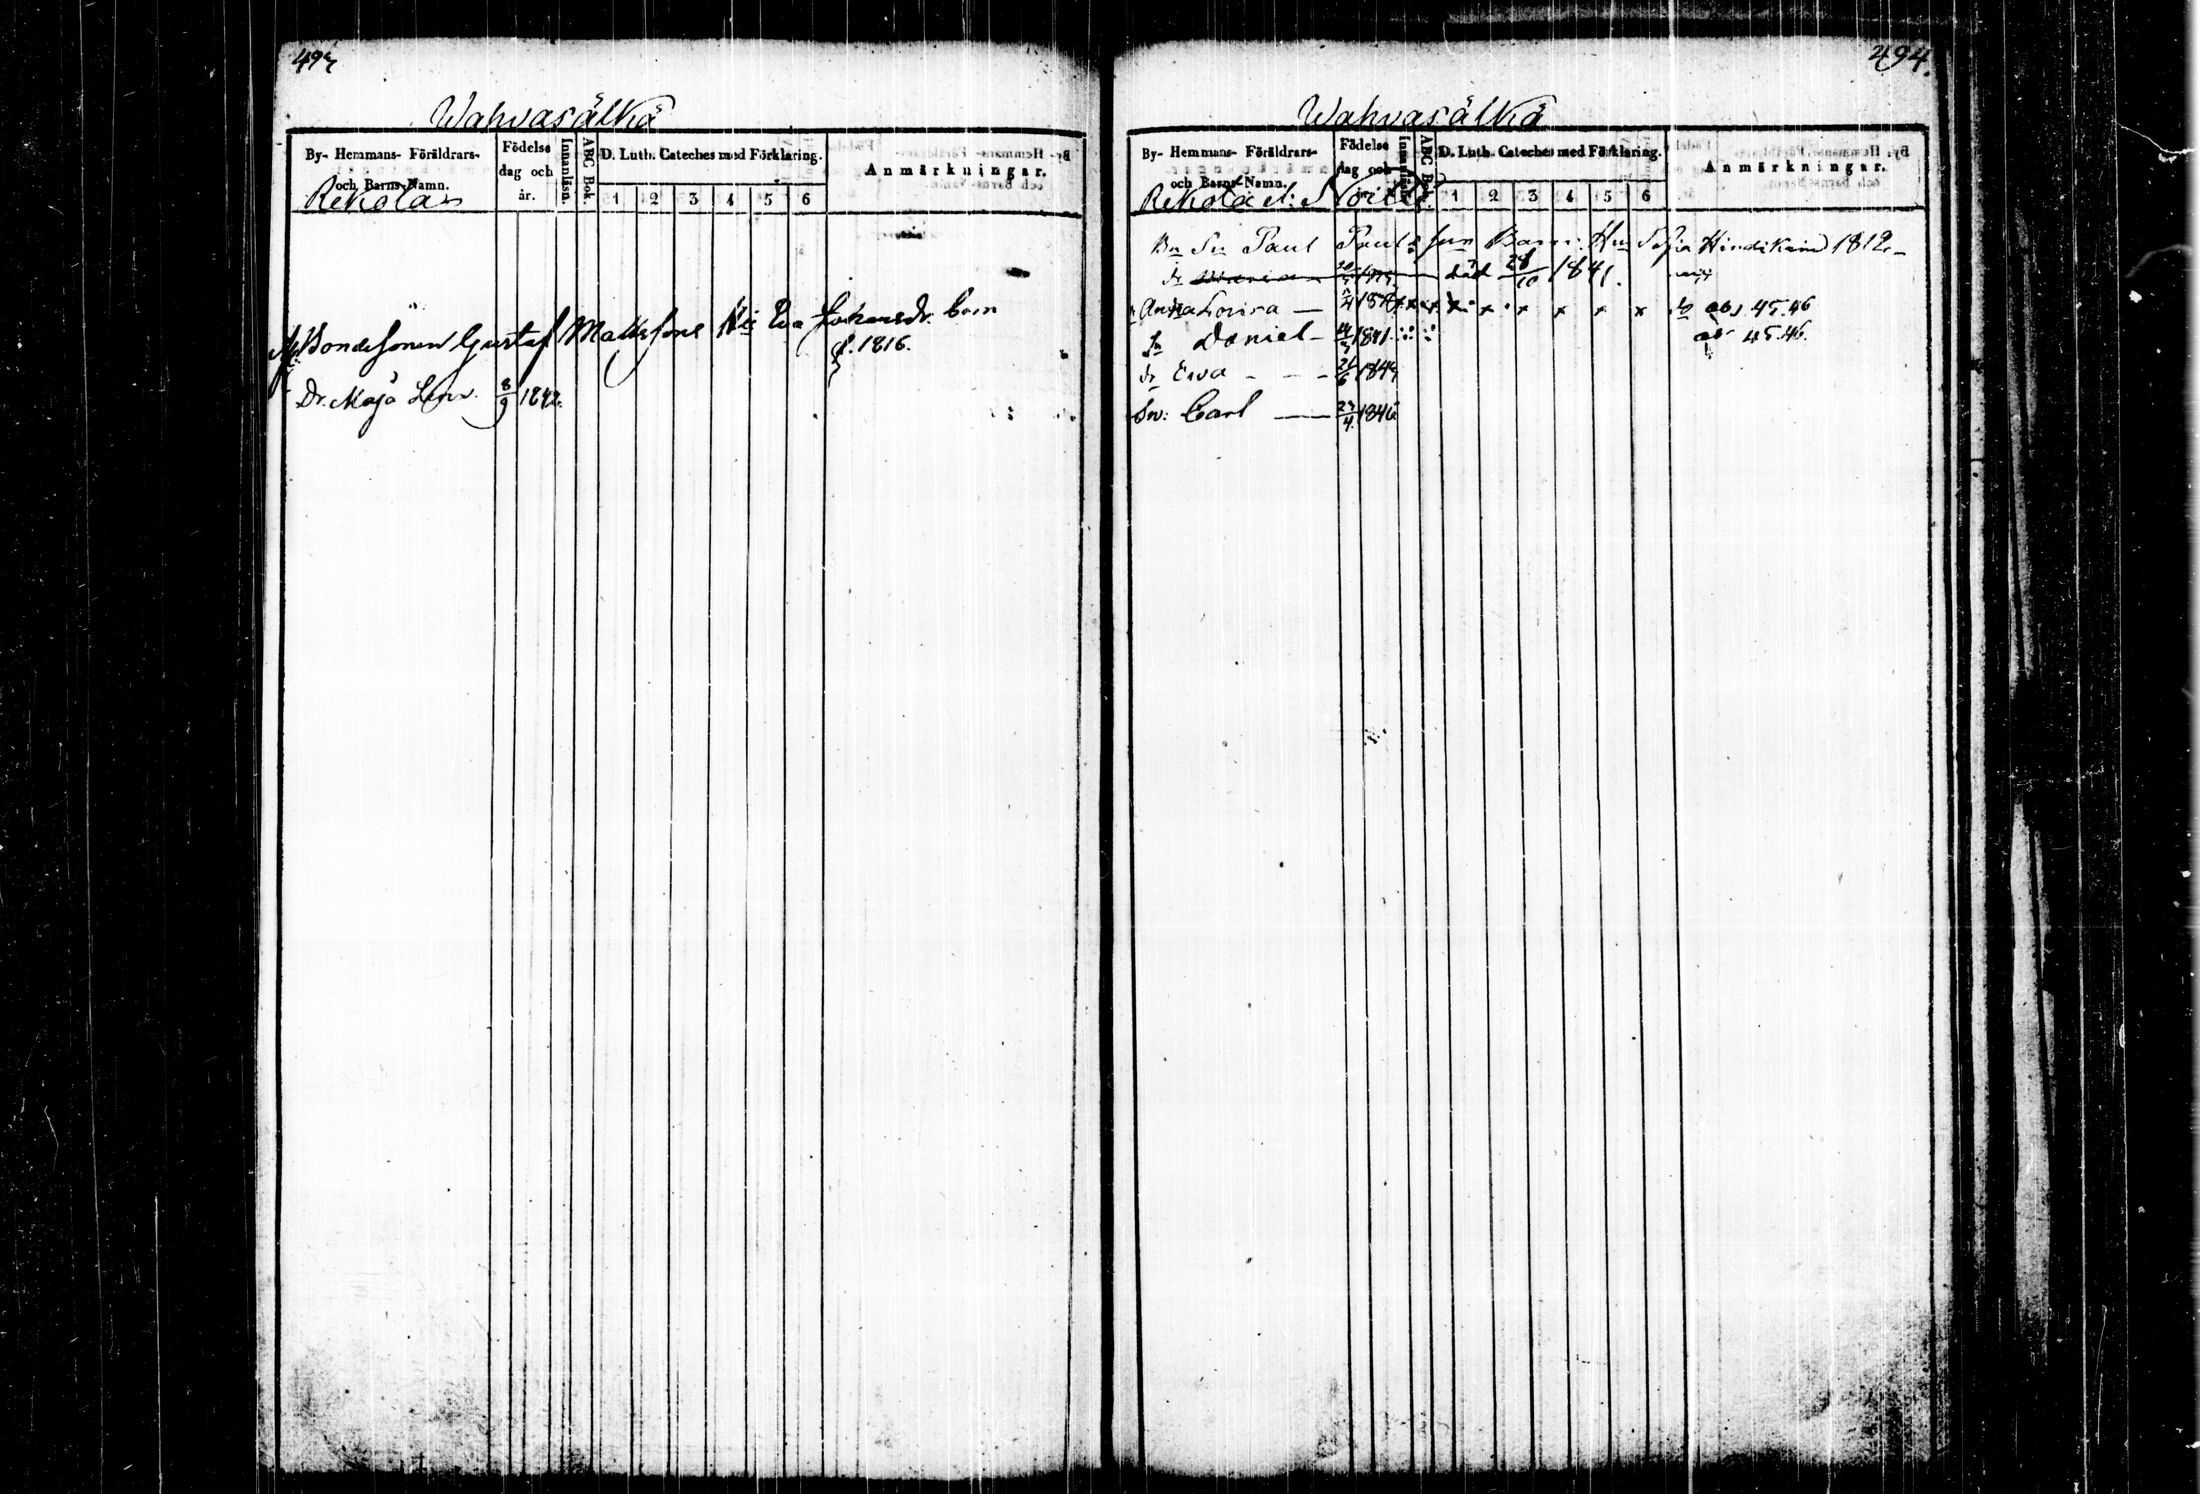 493
Wahvasälkä
By- Hemmans- Föräldrars-
och Barns-Namn.
Födelse
dag och
år.
Innanläsn.
ABC Bok.
D. Luth. Cateches med Förklaring.
1 2 3 4 5 6
Anmärkningar.
Rekola
Bondesonen Gustaf Mattsons Eva Johansdr. barn
f. 1816.
Dr. Maja Lena 8/9 1842.
494.
Wahvasälkä
By- Hemmans- Föräldrars-
och Barns-Namn.
Födelse
dag och
år.
Innanläsn.
ABC Bok.
D. Luth. Cateches med Förklaring.
1 2 3 4 5 6
Anmärkningar.
Rekola
Bn Sn Paul Pauls son Barn. Hu Sofia 1812
dr Maria död 28/10 1841.
Anna Lovisa — x x x x x x abs. 45. 46
Sn Daniel — 1841 ab 45.46.
dr Ewa - - -
Sn: Carl — 23/4 1846